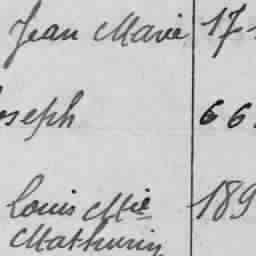 Jean Marie 17
oseph 66
Louis Mie 189
Mathurin